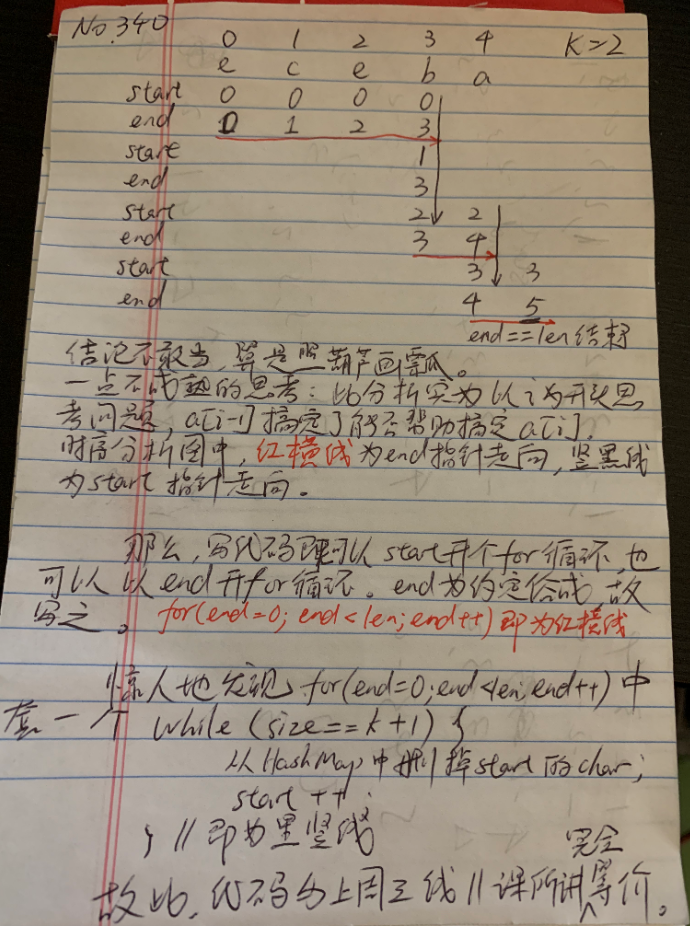 No.340 0 1 2 3 4 K=2
e c e b a
start 0 0 0 0
end 0 1 2 3
start 1
end 3
start 2 2
end 3 4
start 3 3
end 4 5
end==len 结束
结论不敢当，算是照葫芦画瓢。
一点不成熟的思考：此分析实为以 i 为开头思
考问题，a[i-1] 搞定了能否帮助搞定 a[i]。
时序分析图中，红横线为end指针走向，竖黑线
为start 指针走向。
那么，写代码即可以 start 开个for循环，也
可以以 end 开for循环。end为约定俗成，故
写之。for(end=0; end<len; end++) 即为红横线
惊人地发现 for(end=0; end<len; end++) 中
套一个 while (size==k+1) {
从HashMap中删掉start的char;
start ++;
} // 即为黑竖线
完全
故此，代码与上周三线//课所讲等价。